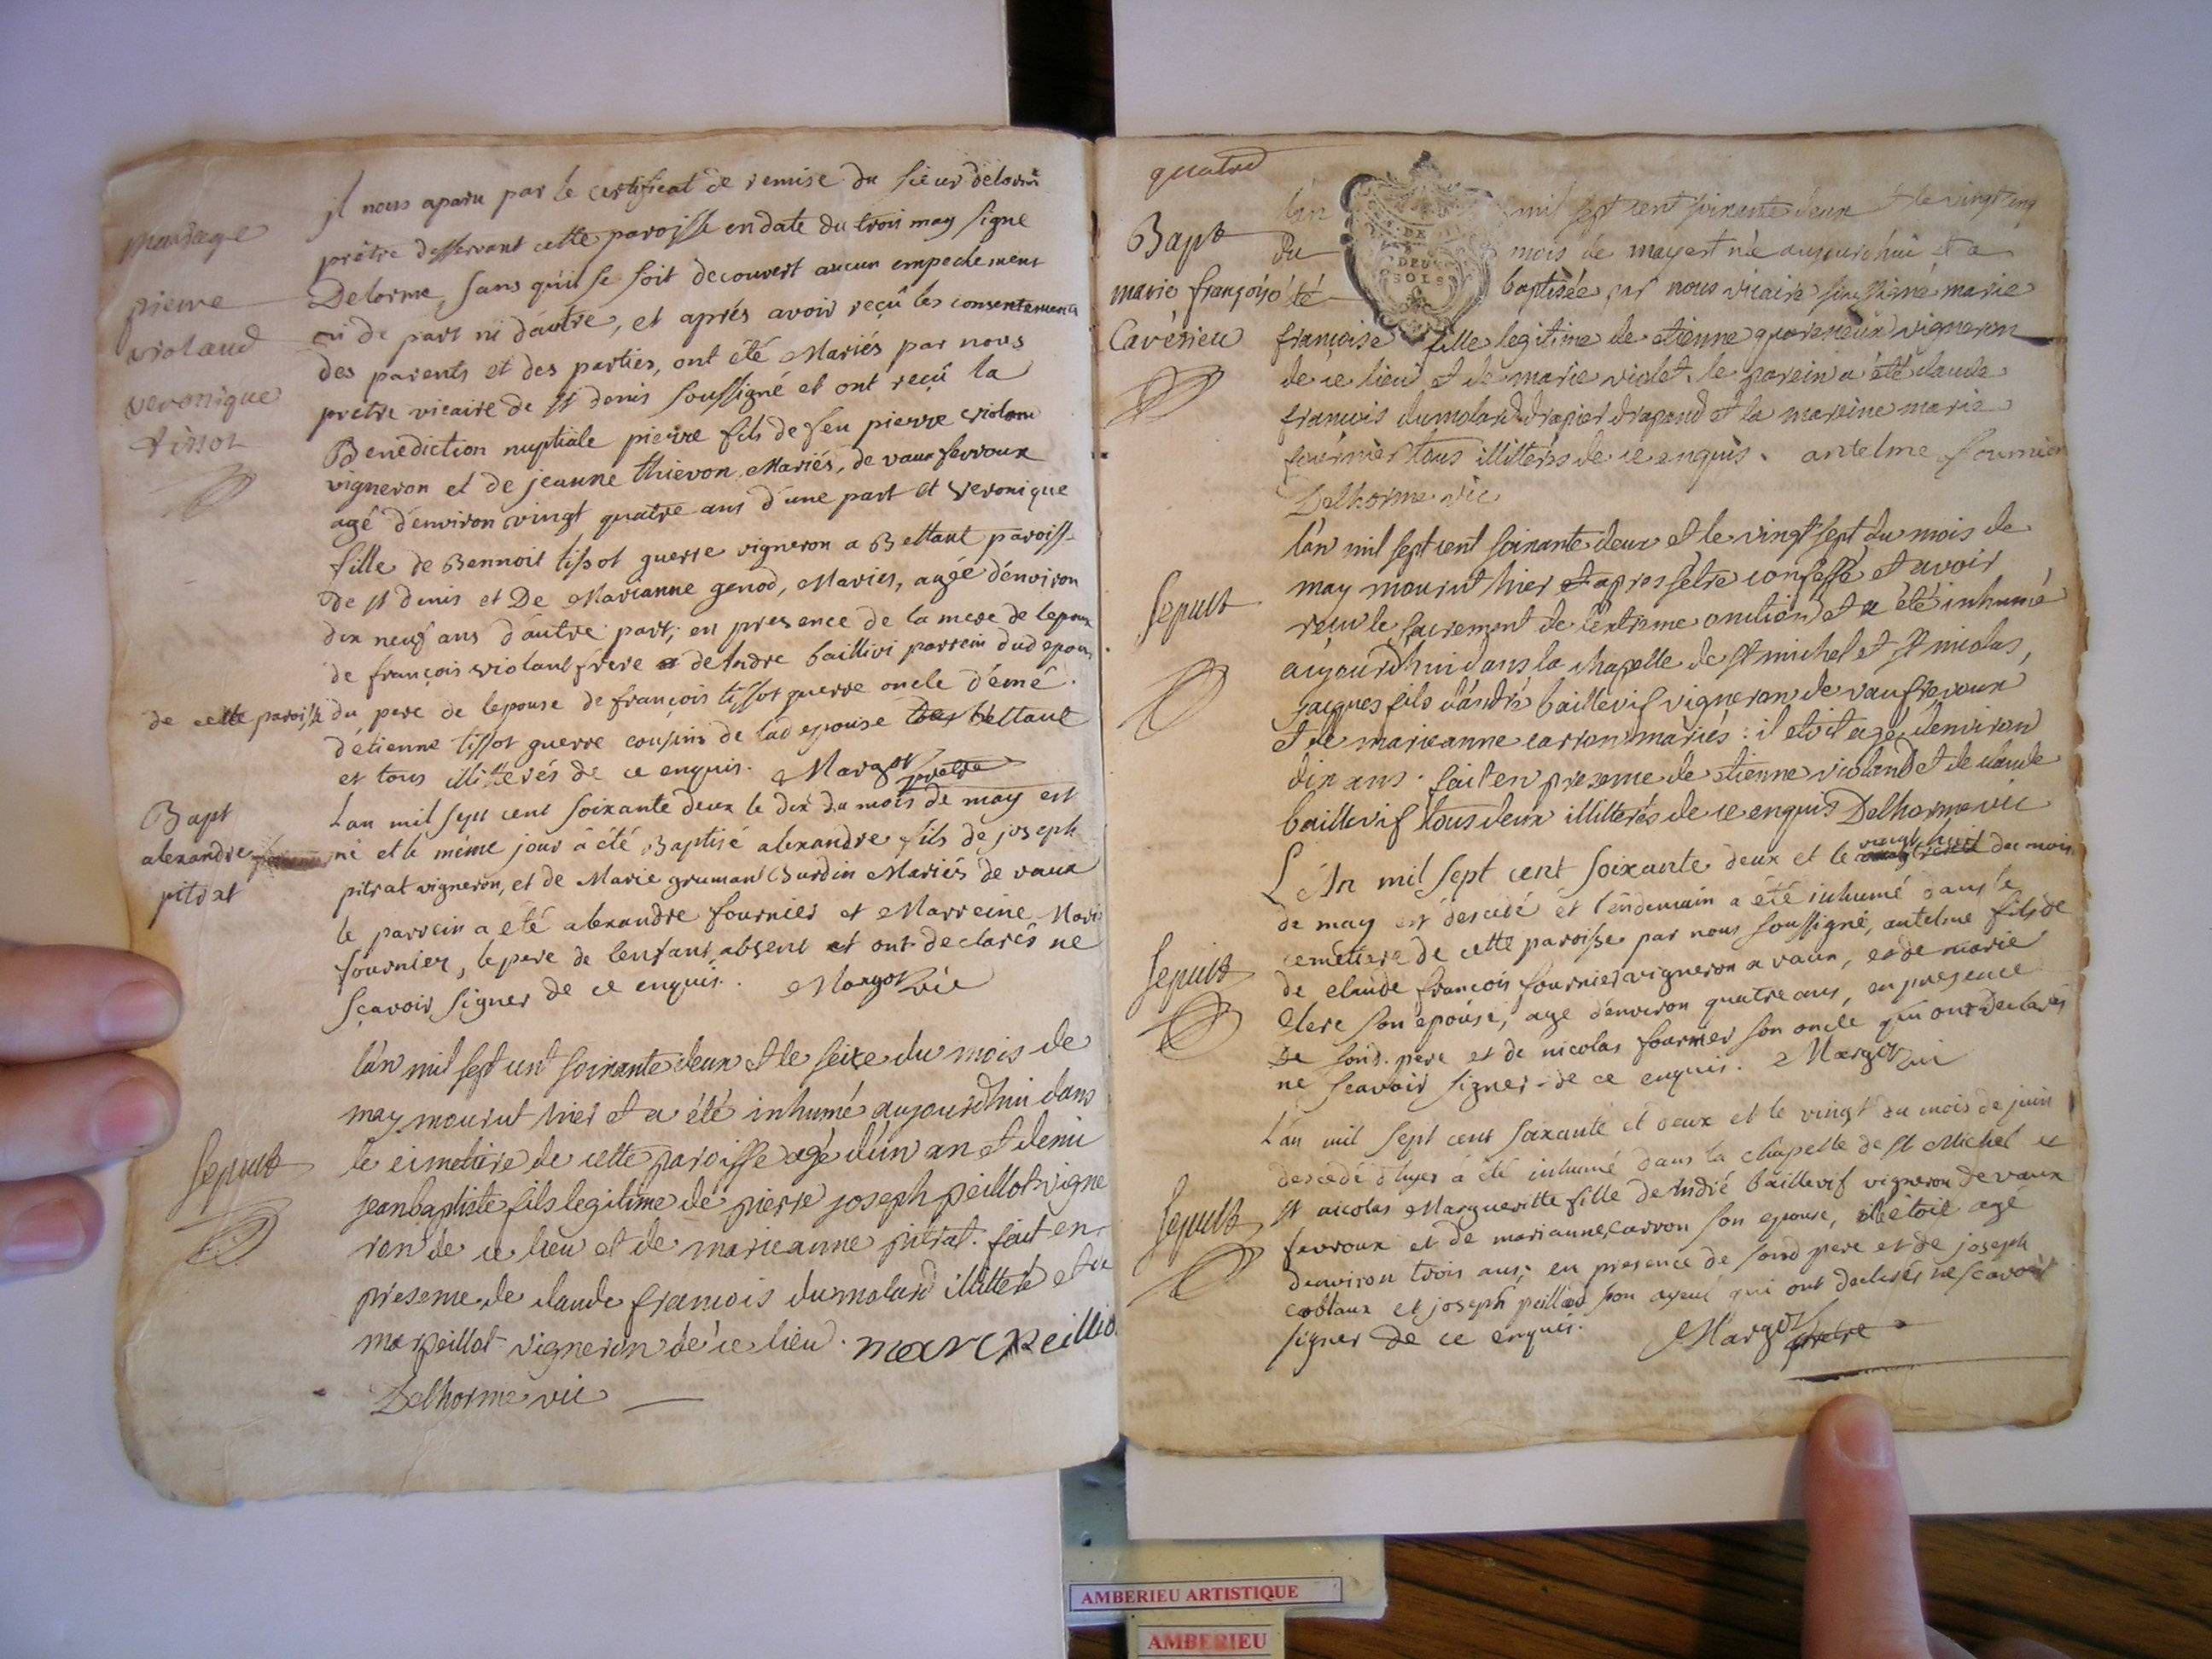 mariage
pierre
violand
veronique
tissot
il nous aparu par le certificat de remise du sieur delorme
prêtre desservant cette paroisse en date du trois may signe
Delorme, sans qu'il se soit decouvert aucun empechement
ni de part ni d'autre, et aprés avoir reçû les consentements
des parents et des parties, ont été Mariés par nous
pretre vicaire de st denis soussigné et ont reçû la
Benediction nuptiale pierre fils de feu pierre violand
vigneron et de jeanne thievon Mariés, de vaux fevroux
agé d'environ vingt quatre ans d'une part et veronique
fille de Bennoit tissot guerre vigneron a Bettant paroisse
de st denis et De Marianne genod, Mariés, agée d'environ
dix neuf ans d'autre part; en presence de la mere de lepoux
de françois violand frere de Andre baillivi parrein dud epoux
de cette paroisse du pere de lepouse de françois tissot guerre oncle d'emé
d'étienne tissot guerre cousins de lad epouse bettant
et tous illiterés de ce enquis. Margot pretre
Bapt
alexandre
pitrat
Lan mil sept cent soixante deux le dix du mois de may est
né et le même jour à été Baptisé alexandre fils de joseph
pitrat vigneron, et de Marie gruman Burdin Mariés de vaux
le parrein a été alexandre fournier et Marreine Marie
fournier, le pere de lenfant absent et ont declarés ne
sçavoir signer de ce enquis. Margot vic
Sepult
l'an mil sept cent soixante deux et le seize du mois de
may mourut hier et a été inhumé aujourdhui dans
le cimetiere de cette paroisse agé d'un an et demi
jean baptiste fils legitime de pierre joseph peillot vigne
ron de ce lieu et de marieanne pitrat. fait en
presence de claude francois dumolard illitteré et de
marc peillot vigneron de ce lieu. marc peillio
Delhorme vic
quatre
Bapt
marie françoise
Cavérieu
DEUX
SOLS
l'an mil sept cent soixante deux et le vingt cinq
du mois de may est née aujourdhui et a
été baptisée par nous vicaire soussigné marie
françoise fille legitime de etienne quareneux vigneron
de ce lieu et de marie violet. le parein a été claude
francois dumolard drapier drapand et la mareine marie
fournier tous illitterés de ce enquis. antelme fournier
Delhorme vic
Sepult
l'an mil sept cent soixante deux et le vingt sept du mois de
may mourut hier et apres s'etre confessé et avoir
reçu le sacrement de l'extreme onction et a été inhumé
aujourdhui dans la chapelle de st michel et st nicolas,
jacques fils d'andré baillevif vigneron de vaufevroux
et de marieanne carron mariés: il etoit agé denviron
dix ans. fait en presence de etienne violand et de claude
baillevif tous deux illitterés de ce enquis Delhorme vic
Sepult
L'An mil sept cent soixante deux et le vingt huit du mois
de may est decedé et l'endemain a été inhumé dans le
cemetiere de cette paroisse par nous soussigné, antelme fils de
de claude francois fournier vigneron a vaux, et de marie
Clere son épouse, agé d'environ quatre ans, en presence
De sond. pere et de nicolas fournier son oncle qui ont declarés
ne scavoir signer de ce enquis. Margot vic
Sepult
L'an mil sept cent soixante et deux et le vingt du mois de juin
decedé d'hyer à été inhumé dans la chapelle de st Michel et
st nicolas Margueritte fille de Andié baillevif vigneron de vaux
fevroux et de marianne carron son epouse, elle étoit agé
denviron trois ans; en presence de sond pere et de joseph
et joseph peillod son ayeul qui ont declarés ne scavoir
signer de ce enquis. Margot pretre
AMBERIEU ARTISTIQUE
AMBERIEU